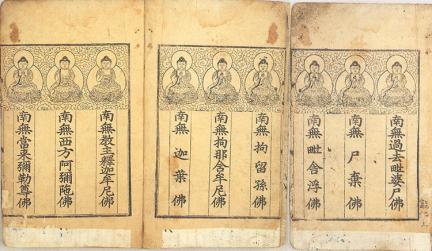 南無過去毗婆尸佛
南無尸棄佛
南無毗舍浮佛
南無拘留孫佛
南無拘那含牟尼佛
南無迦葉佛
南無教主釋迦牟尼佛
南無西方阿彌陁佛
南無當來彌勒尊佛